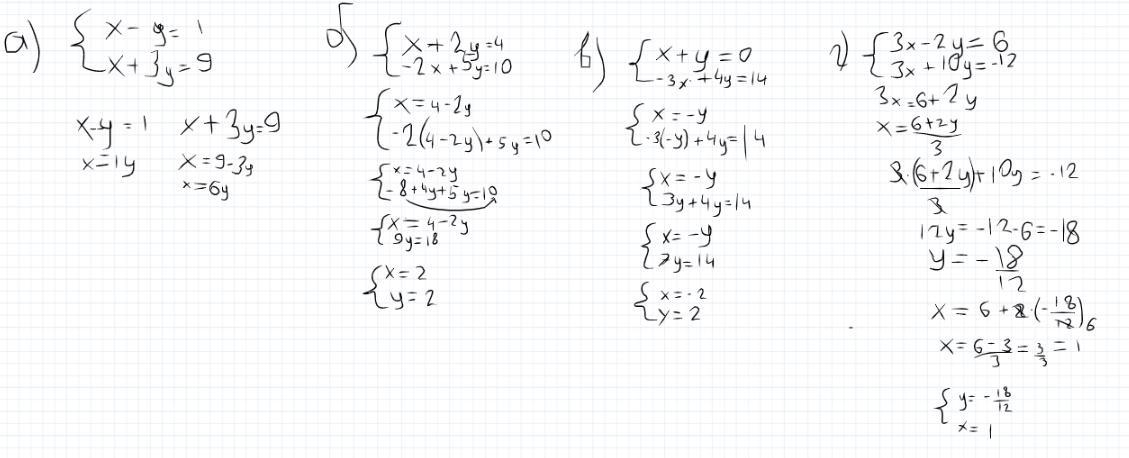 а) { x - y = 1
x + 3y = 9
x-y = 1 x + 3y=9
x=1y x = 9-3y
x=6y
б) { x + 2y=4
-2x + 5y=10
{ x = 4-2y
-2(4-2y)+5y=10
{ x=4-2y
-8+4y+5y=10
{ x = 4-2y
9y=18
{ x=2
y=2
в) { x + y = 0
-3x + 4y=14
{ x = -y
-3(-y)+4y=14
{ x = -y
3y+4y=14
{ x= -y
7y=14
{ x=-2
y=2
г) { 3x-2y= 6
3x+10y=-12
3x=6+2y
x= 6+2y
3
3·(6+2y)+10y = -12
3
12y= -12-6=-18
y = - 18
12
x = 6 +2·(- 18 )
12 6
x= 6-3 = 3 = 1
3 3
{ y= - 18
12
x= 1